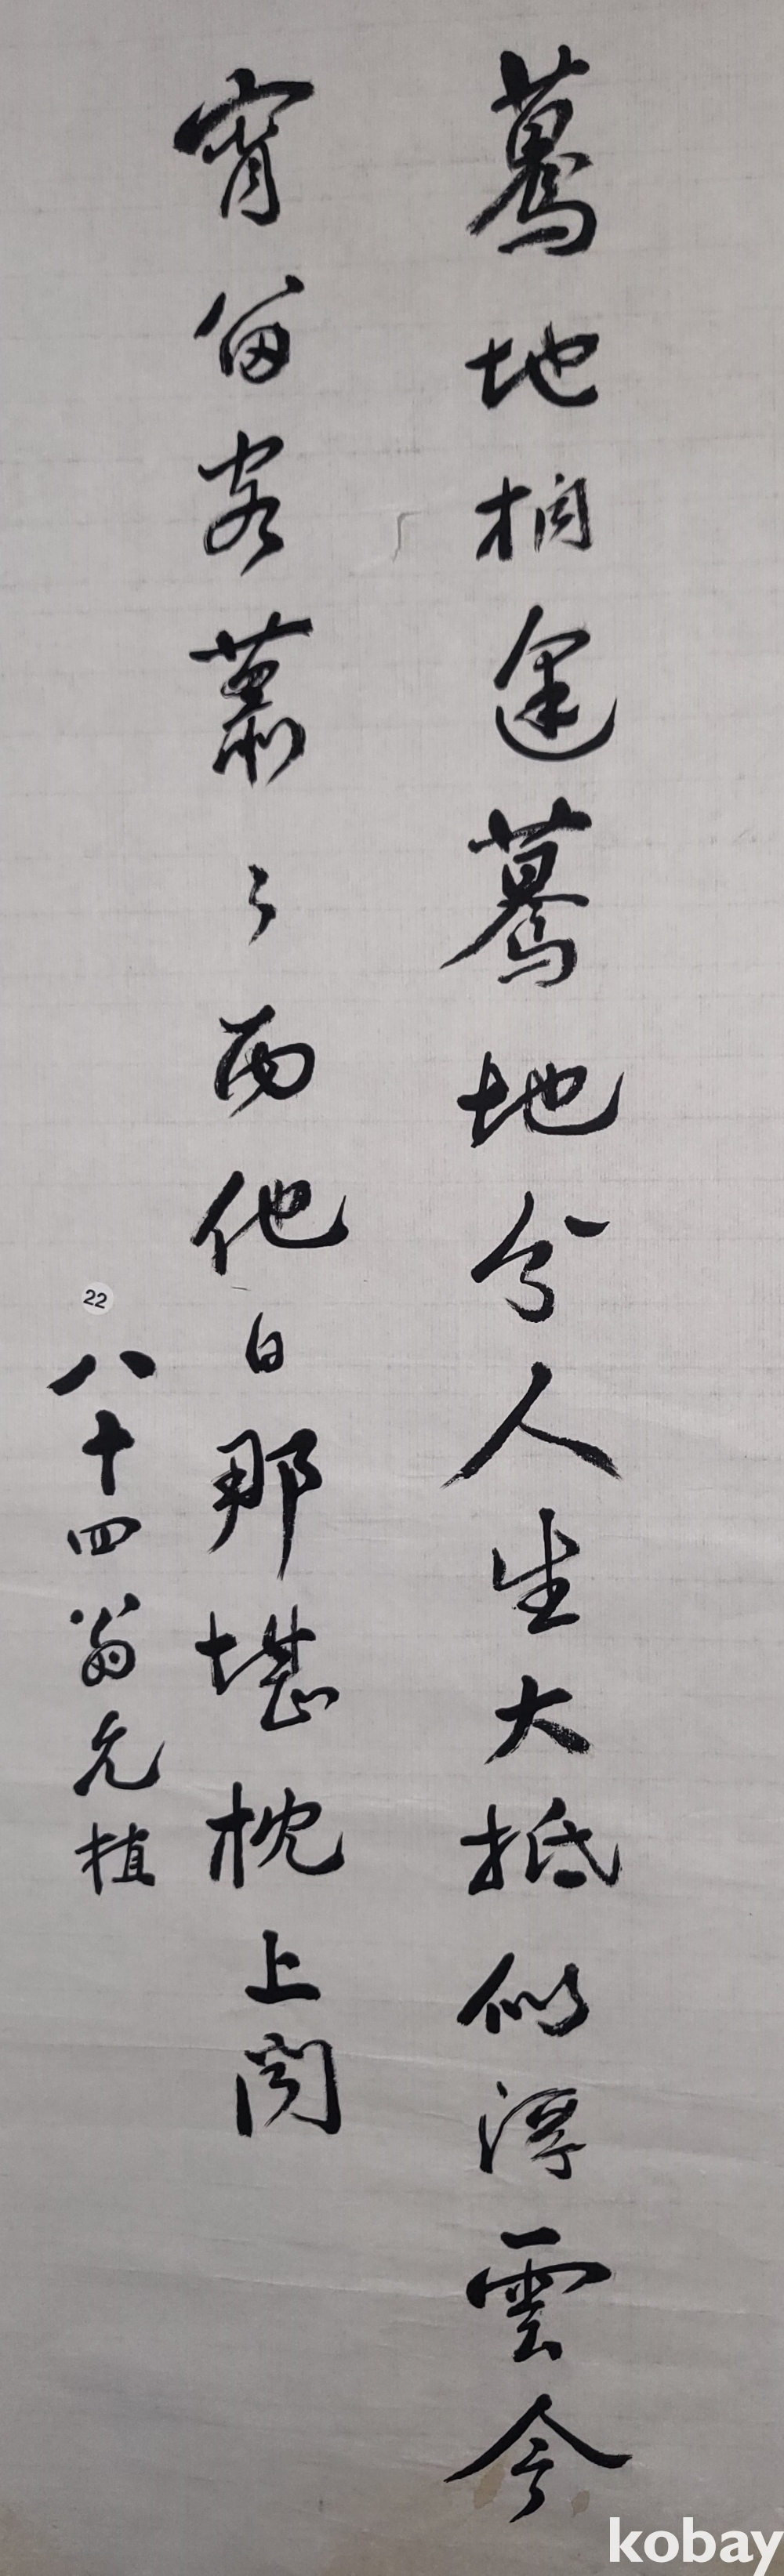 驀地相逢驀地分人生大抵似浮雲今
宵留客蕭々雨他日那堪枕上聞
八十四翁允植
22
kobay